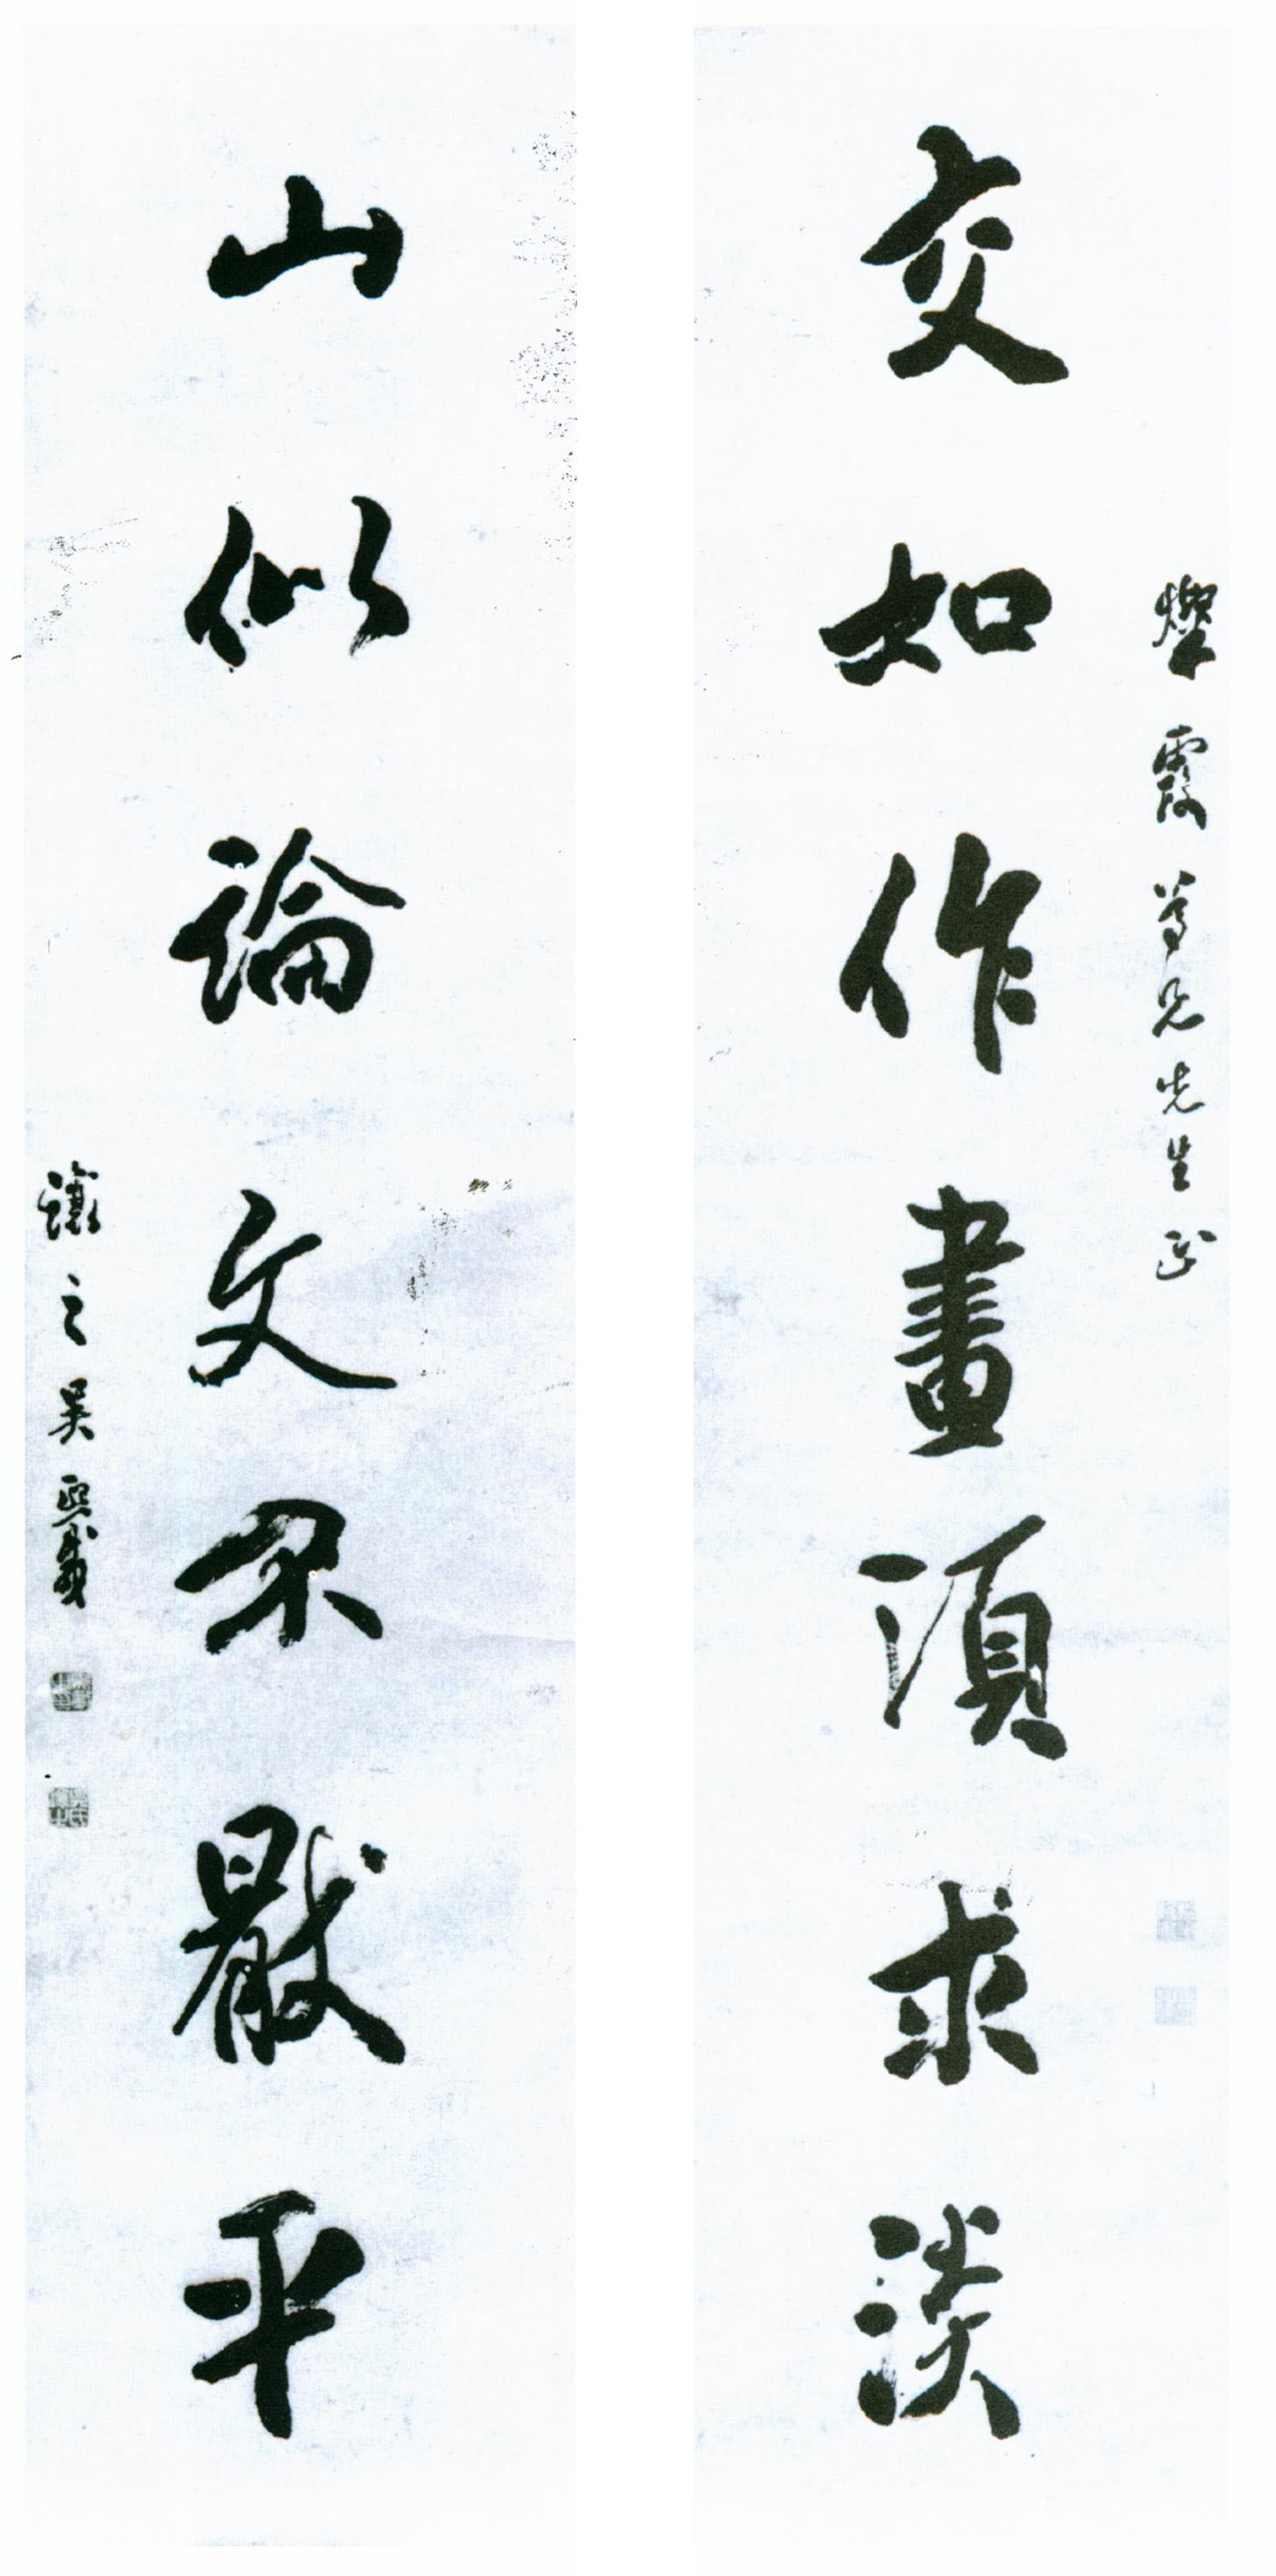 燦霞尊兄先生正
交如作畫須求淡
山似論文不猒平
讓之吳熙載